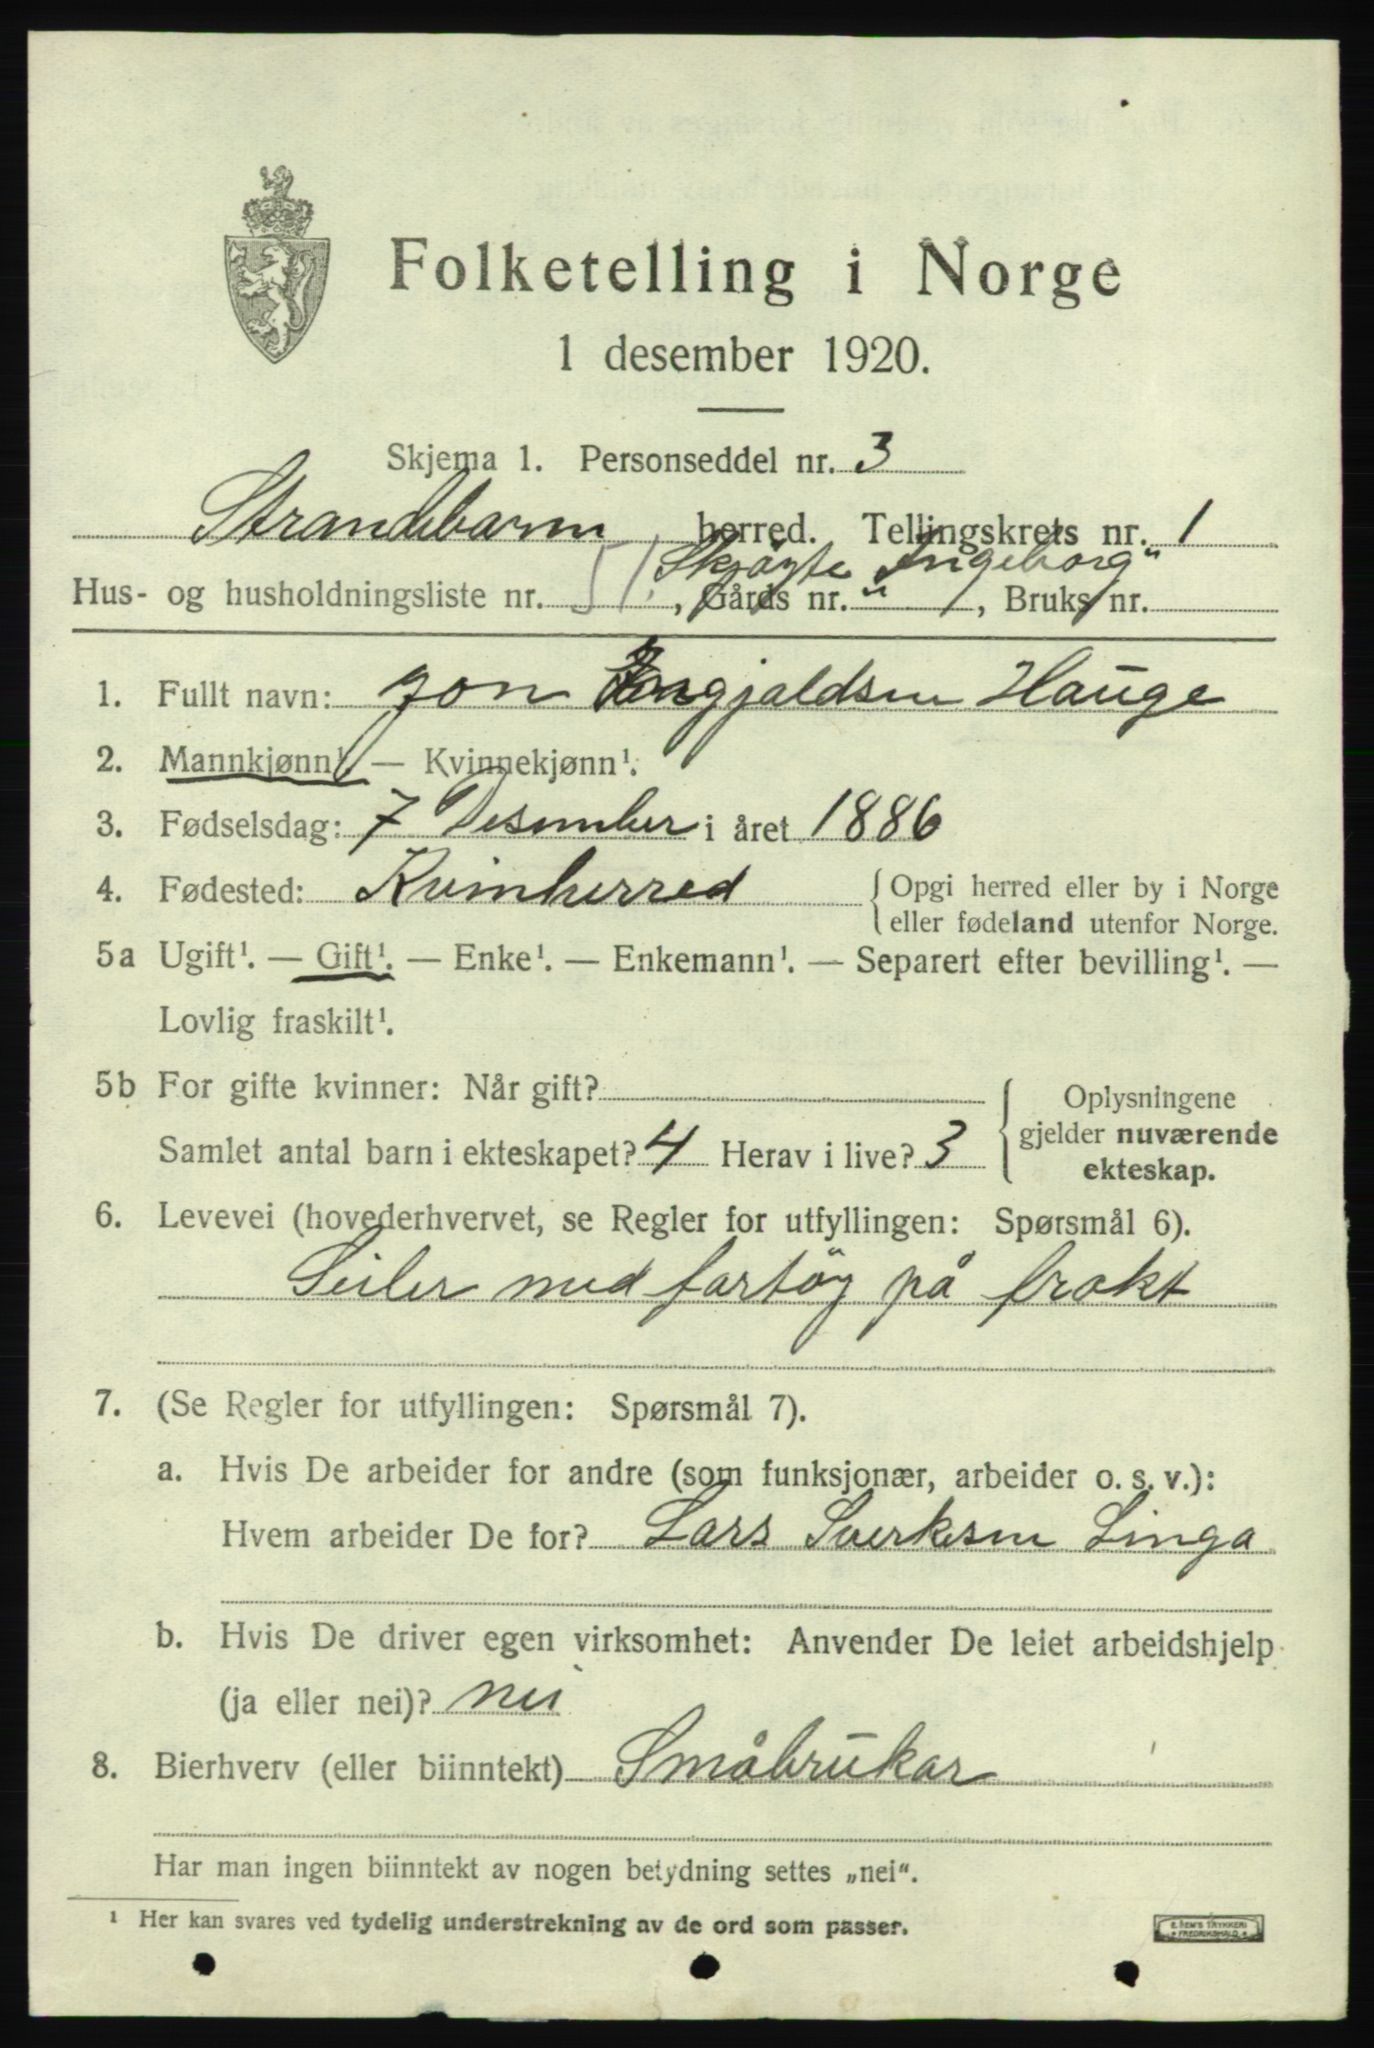 Folketelling i Norge
1 desember 1920.
Skjema 1. Personseddel nr. 3
Strandebarm herred. Tellingskrets nr. 1
Skjøyte „Ingeborg“
Hus- og husholdningsliste nr. 51, Gårds nr. , Bruks nr.
1. Fullt navn: Jon Ingjaldsen Hauge
2. Mannkjønn¹. — Kvinnekjønn¹.
3. Fødselsdag: 7 Desember i året 1886
4. Fødested: Kvinherred {Opgi herred eller by i Norge
eller fødeland utenfor Norge.
5a Ugift¹. — Gift¹. — Enke¹. — Enkemann¹. — Separert efter bevilling¹. —
Lovlig fraskilt¹.
5b For gifte kvinner: Når gift?
Samlet antal barn i ekteskapet? 4 Herav i live? 3
Oplysningene
gjelder nuværende
ekteskap.
6. Levevei (hovederhvervet, se Regler for utfyllingen: Spørsmål 6).
Seiler med fartøy på frakt
7. (Se Regler for utfyllingen: Spørsmål 7).
a. Hvis De arbeider for andre (som funksjonær, arbeider o. s. v.):
Hvem arbeider De for? Lars Sverkesen Linga
b. Hvis De driver egen virksomhet: Anvender De leiet arbeidshjelp
(ja eller nei)? nei
8. Bierhverv (eller biinntekt) Småbrukar
Har man ingen biinntekt av nogen betydning settes „nei“.
¹ Her kan svares ved tydelig understrekning av de ord som passer.
E. SEM'S TRYKKERI
FREDRIKSHALD